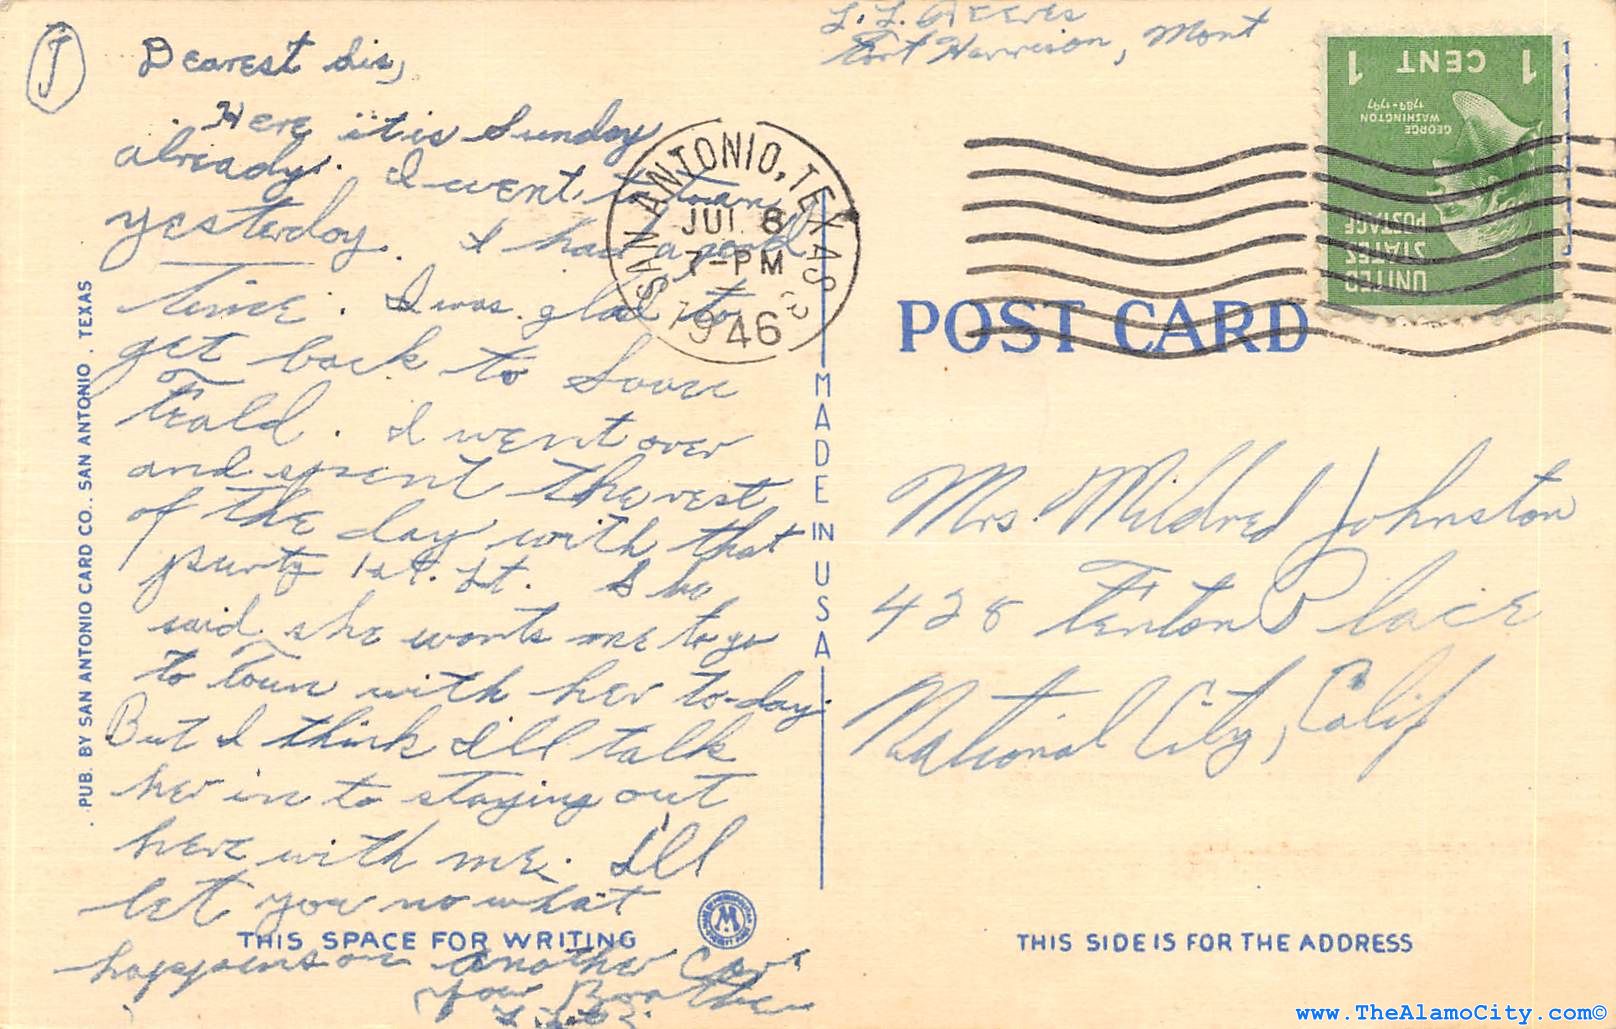 J
Dearest Sis,
Here it is Sunday
already. I went to town
yesterday. I had a good
time. I was glad to
get back to
Feald. I went over
and spent the rest
of the day with that
purty 1st. Lt. She
said she wonts me to go
to town with her to-day
But I think I'll talk
her in to staying out
here with me. I'll
let you no what
happens on another Card
Your Brother
Fort Harrison, Mont
SAN ANTONIO, TEXAS
JUL 8
7-PM
1946
1 CENT 1
GEORGE
WASHINGTON
1789-1797
UNITED
STATES
POSTAGE
POST CARD
Mrs. Mildred Johnston
428 Fenton Place
National City, Calif
MADE IN USA
PUB. BY SAN ANTONIO CARD CO., SAN ANTONIO, TEXAS
THIS SPACE FOR WRITING
M
THIS SIDE IS FOR THE ADDRESS
www.TheAlamoCity.com©